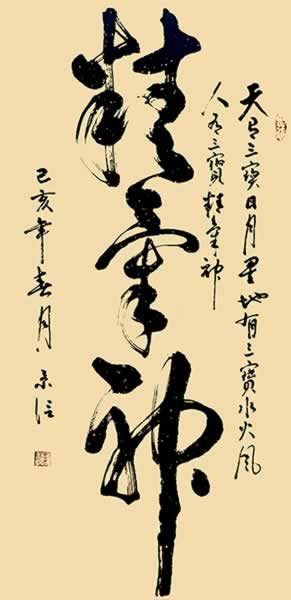 天有三寶日月星地有三寶水火風
人有三寶精氣神
精氣神
己亥年春月